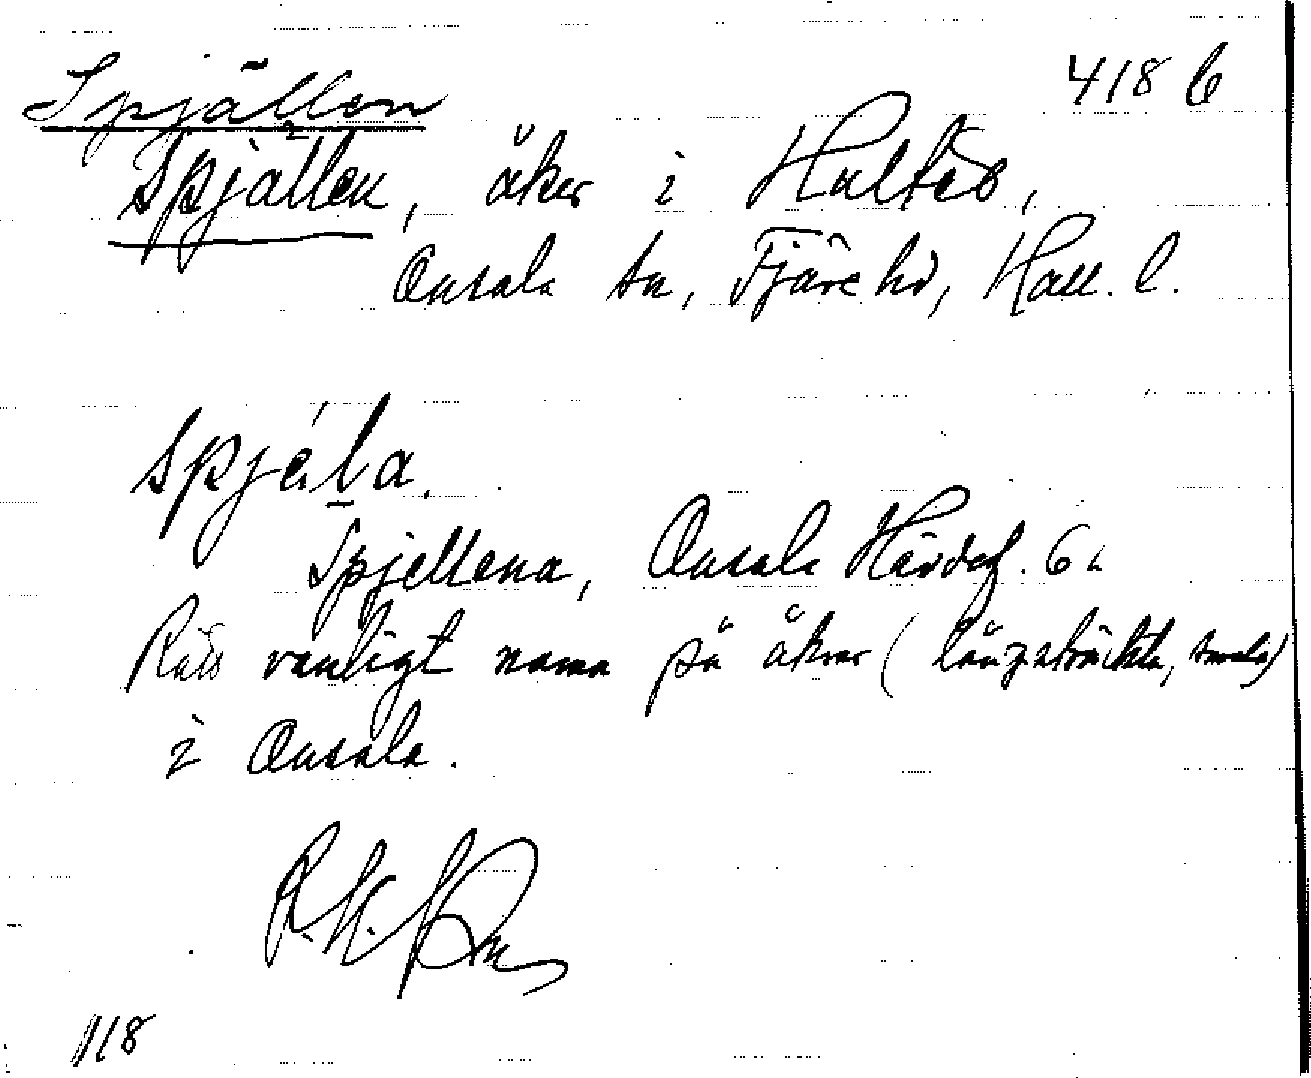 Spjällen 418 b
Spjällen, åker i Hultås,
Onsala sn, Fjäre hd, Hall. l.
spjäla.
Spjellena, Onsala
vanligt namn på åkrar (långsträckta, smala)
i Onsala.
118